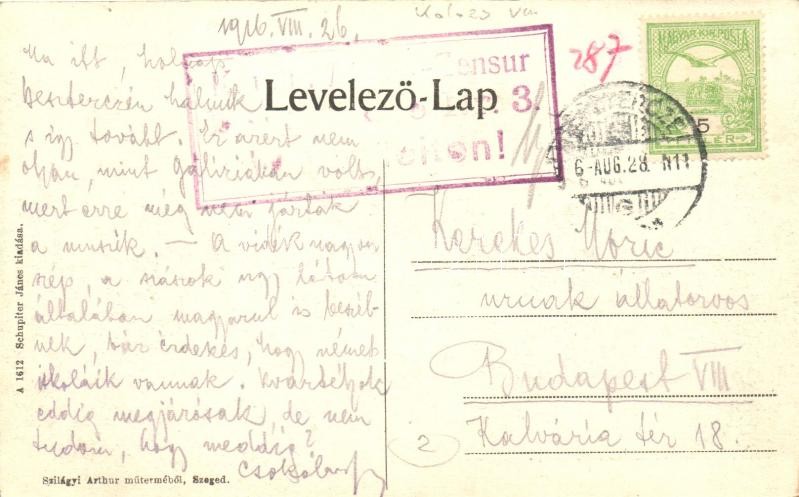 1916. VIII. 26.
Ma itt, holnap
beszterczén hálunk
s így tovább. Ez azért nem
olyan, mint Galiciában volt,
mert erre még nem jártak
a muszkák. — A vidék nagyon
szép, a szászok úgy látom
általában magyarul is beszél-
nek, bár érdekes, hogy német
iskoláik vannak. Kvártélyok
eddig megjárósak, de nem
tudom, hogy meddig?
Csókol
Levelező-Lap
Zensur
3.
287
MAGYAR KIR. POSTA
5
FILLÉR
6-AUG.28. N11
Kerekes Móric
urnak állatorvos
Budapest VIII
Kalvária tér 18.
2
A 1612 Schupiter János kiadása.
Szilágyi Arthur műterméből, Szeged.